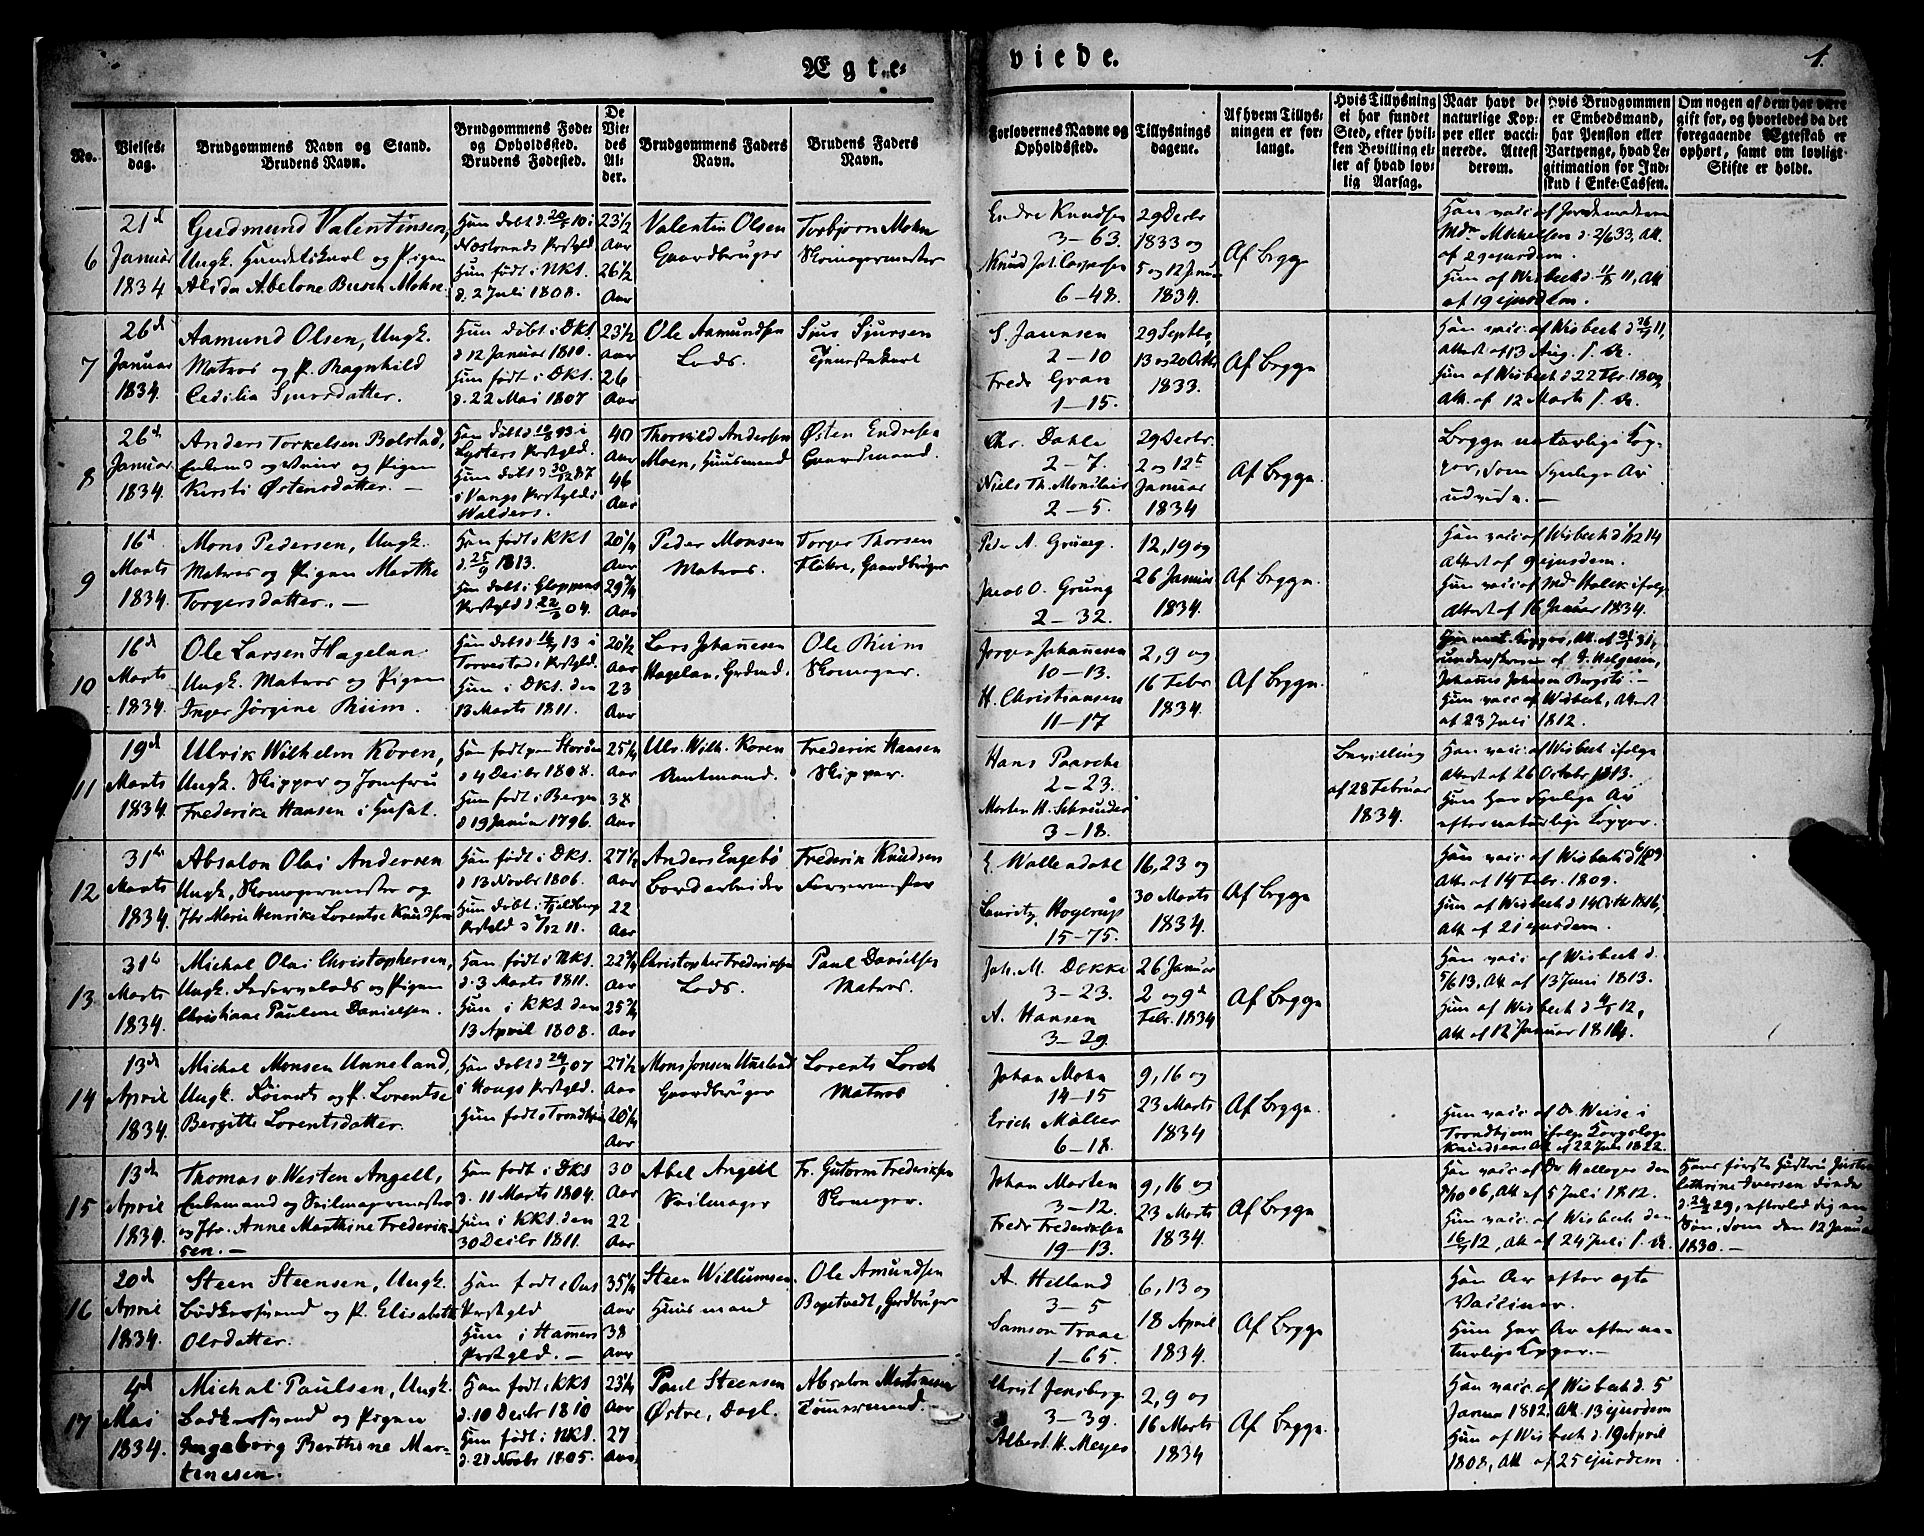 Ægte-
viede.
4.
No.
Vielses-
dag.
Brudgommens Navn og Stand.
Brudens Navn.
Brudgommens Føde-
og Opholdssted.
Brudens Fødested.
De
Vie-
des
Al-
der.
Brudgommens Faders
Navn.
Brudens Faders
Navn.
Forlovernes Navne og
Opholdssted.
Tillysnings
dagene.
Af hvem Tillys-
ningen er for-
langt.
Hvis Tillysning
ei har fundet
Sted, efter hvil-
ken Bevilling el-
ler af hvad lov-
lig Aarsag.
Naar havt de
naturlige Kop-
per eller vacci-
nerede. Attest
derom.
Hvis Brudgommen
er Embedsmand,
har Pension eller
Vartpenge, hvad Le-
gitimation for Ind-
skud i Enke-Cassen.
Om nogen af dem har være
gift for, og hvorledes da det
foregaaende Ægteskab er
ophørt, samt om lovligt
Skifte er holdt.
6
21d
Januar
1834
Gudmund Valentinsen,
Ungk. Handelskarl og Pigen
Alida Abelone Busch Mohn.
Han døbt d. 20/5 10 i
Præstgld.
Hun født i NKS.
d. 2 Juli 1808.
23 1/2
Aar
26 1/2
Aar
Valentin Olsen
Gaardbruger
Torbjørn Mohn
Skomagermester
Endre Knudsen
3-63.
Knud Joh. Caspersen
6-48.
29 Decbr
1833 og
5 og 12 Janu
1834.
Af Begge
Han vacc. af Jordemoderen
Md. Michelsen d. 2/6 33, Att.
af 29 ejusdem.
Hun af Wisbech d. 11, Att
af 19 ejusdem.
7
26d
Januar
1834.
Aamund Olsen, Ungk.
Matros og P. Ragnhild
Cecilia Sjursdatter.
Han døbt i DKS.
d 12 Januar 1810.
Hun født i DKS.
d. 22 Mai 1807
23 1/2
Aar
26
Aar
Ole Aamundsen
Lods.
Sjur Sjursen
Tjenestekarl
S. Jannsen
2-10
Fredr Gran
1-15.
29 Septbr,
13 og 20 Octbr
1833.
Af Begge
Han vacc. af Wisbech d 26/7 11,
Attest af 13 Aug. s. A.
Hun af Wisbech d 22 Febr. 1809,
Att. af 12 Marts s. A.
8
26d
Januar
1834.
Anders Torkelsen Bolstad,
Enkemd og Veier og Pigen
Kirsti Østensdatter. —
Han døbt d 93 i
Lysters Præstgld.
Hun døbt d. 30/12 87
i Vangs Præstgld i
Walders.
40
Aar
46
Aar
Thorkild Andersen
Moen, Huusmand
Østen Endresen
Gaardmand.
Chr. Dahle
2-7.
Niels Th. Monclair
2-5.
29 Decbr.
2 og 12t
Januar
1834
Af Begge
Begge naturlige Kop-
per, som synlige Ar
udvise. —
9
16d
Marts
1834.
Mons Pedersen, Ungk.
Matros og Pigen Marthe
Torgersdatter. —
Han født i KKS
d. 25/9 1813.
Hun døbt i Gloppens
Præstgld d 22/3 04.
20 1/4
Aar
29 3/4
Aar
Peder Monsen
Matros.
Torger Thorsen
Fløtre, Gaardbruger
Peder A. Grung.
Jacob O. Grung
2-32.
12, 19 og
26 Januar
1834.
Af Begge.
Han vacc. af Wisbech d 1/12 14
Attest af 9 ejusdem.
Hun vacc. af Md Holck ifølge
Attest af 16 Januar 1834.
10
16d
Marts
1834.
Ole Larsen Hagelan
Ungk. Matros og Pigen
Inger Jørgine Riim.
Han døbt d 16/ 13 i
Torvestad i Præstgld.
Hun i DKS. den
13 Marts 1811.
20 1/2
Aar
23
Aar
Lars Johannesen
Hagelan, Grdmd.
Ole Riim
Skomager.
Jørgen Johannesen
10-13.
H. Christiansen
11-17
2, 9 og
16 Febr
1834.
Af Begge.
Han nat. Kopper, Att. af 31,
underskreven af G. Helgesen,
Johannes Johnsen Bergsti. —
Hun vacc. af Wisbech, Attest
af 23 Juli 1812.
11
19d
Marts
1834.
Ulrik Wilhelm Koren,
Ungk. Skipper og Jomfru
Frederike Hansen i Huset.
Han født paa Storøn
d 4 Decbr 1808.
Hun født i Bergen
d 19 Januar 1796.
25 1/4
Aar
38
Aar
Ulr. Wilh. Koren
Amtmand.
Frederik Hansen
Skipper.
Hans Paasche
2-23.
Morten H. Schreuder
3-18.
Bevilling
af 28 Februar
1834.
Han vacc. af Wisbech ifølge
Attest af 26 Octobr 1813.
Hun har synlige Ar
efter naturlige Kopper.
12
31te
Marts
1834.
Absalon Olai Andersen
Ungk, Skomagermester og
Jfr Maria Henrike Lorentse Knudsen
Han født i DKS.
d 13 Novbr 1806.
Hun døbt i Fjeldberg
Præstgld d /12 11.
27 1/2
Aar
22
Aar
Anders Engebø
Bordarbeider
Frederik Knudsen
Farvermester
E. Wallendahl
Lauritz Hogerup
15-75.
16, 23 og
30 Marts
1834.
Af Begge
Han vacc. af Wisbech d 6/2 09
Att. af 14 Febr. 1809.
Hun af Wisbech d 14 Octbr 1816,
Att. af 21 ejusdem.
13
31te
Marts
1834.
Michal Olai Christophersen,
Ungk. Lods og Pigen
Christiane Pauline Danielsen.
Han født i NKS.
d. 3 Marts 1811.
Hun i KKS den
13 April 1808.
22 3/4
Aar
25 3/4
Aar
Christopher Frederiksen
Lods.
Paul Danielsen
Matros.
Joh. M. Dekke
3-23.
A. Hansen
3-29.
26 Januar
2 og 9d
Febr. 1834
Af Begge
Han vacc. af Wisbech d.
5/6 13, Att. af 13 Juni 1813.
Hun af Wisbech d. 12,
Att. af 12 Januar 1814.
14
13d
April
1834.
Michal Monsen Unneland,
Ungk. og P. Lorentse
Bergitte Lorentsdatter.
Han døbt d 24/ 07
i Hougs Præstgld.
Hun født i Trondhjem
27 1/2
Aar
20 1/4
Aar
Mons Jonsen Unneland
Gaardbruger
Lorents Lorck
Matros
Johan Mohn
14-15
Erich Møller
6-18.
9, 16 og
23 Marts
1834
Af Begge.
Hun vacc. af Dr Weise i
Trondhjem ifølge
Knudsens Att af 22 Juli 1822.
15
13d
April
1834.
Thomas v. Westen Angell,
Enkemand og Seilmagermester
og Jfr. Anne Marthine Frederik-
sen. —
Han født i DKS
d. 11 Marts 1804.
Hun i KKS. den
30 Decbr 1811.
30
Aar
22
Aar
Abel Angell
Seilmager
Fr. Gutorm Frederiksen
Skomager.
Johan Morten
3-12.
Fredr Frederiksen
19-13.
9, 16 og
23 Marts
1834.
Af Begge
Han vacc. af Dr Hallager den
/10 06, Att. af 5 Juli 1812.
Hun vacc. af Wisbech den
16/7 12, Att. af 24 Juli s. A.
Hans første Hustru Justine
Cathrine Iversen døde
d. 24/ 29, efterlod sig en
Søn, som den 12 Januar
1830. —
16
20d
April
1834.
Steen Steensen, Ungk.
Bødkersvend og P. Elisabeth
Olsdatter.
Han født i Ous
Præstgld
Hun i Hammers
Præstgld. —
35 3/4
Aar
38
Aar
Steen Willumsen
Huusmand
Ole Amundsen
Bogstvedt, Grdbruger
A. Helland
3-5
Samson Traae
1-65.
6, 13 og
18 April
1834.
Af Begge
Han Ar efter ægte
Vacciner.
Hun har Ar efter na-
turlige Kopper. —
17
4d
Mai
1834.
Michal Paulsen, Ungk.
Bødkersvend og Pigen
Ingeborg Berthine Mar-
tinesen.
Han født i KKS
d. 10 Decbr 1810
Hun født i NKS.
d. 21 Novbr 1805.
23 1/4
Aar
27
Aar
Paul Steensen
Østre, Dagl.
Absalon Martinesen
Tømmermand.
Christ Jensberg
3-39.
Albert H. Meyer
2, 9 og
16 Marts
1834
Af Begge
Han vacc. af Wisbech d. 5
Januar 1812, Att. 13 ejusdem
Hun af Wisbech d. 19 April
1808, Att af 25 ejusdem